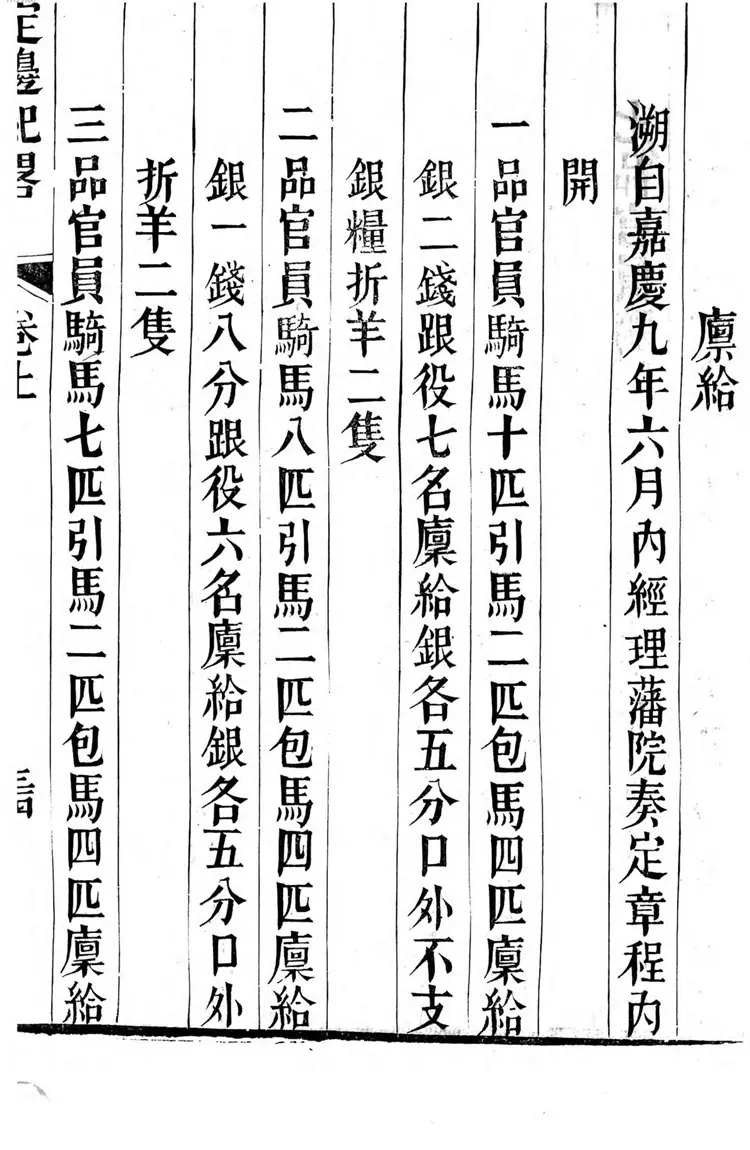 廩給
溯自嘉慶九年六月內經理藩院奏定章程內
開
一品官員騎馬十匹引馬二匹包馬四匹廩給
銀二錢跟役七名廩給銀各五分口外不支
銀糧折羊二隻
二品官員騎馬八匹引馬二匹包馬四匹廩給
銀一錢八分跟役六名廩給銀各五分口外
折羊二隻
三品官員騎馬七匹引馬二匹包馬四匹廩給
定邊紀畧 卷上